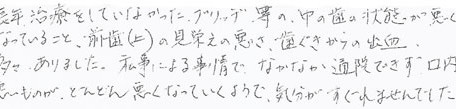 長年治療をしていなかった、ブリッジ 等の、中の歯の状態が悪く
なっていること、前歯(上)の見栄えの悪さ、歯ぐきからの出血、
多々ありました。私事による事情で、なかなか通院できず、口内
悪いものが、どんどん悪くなっていくようで、気分がすぐれませんでした